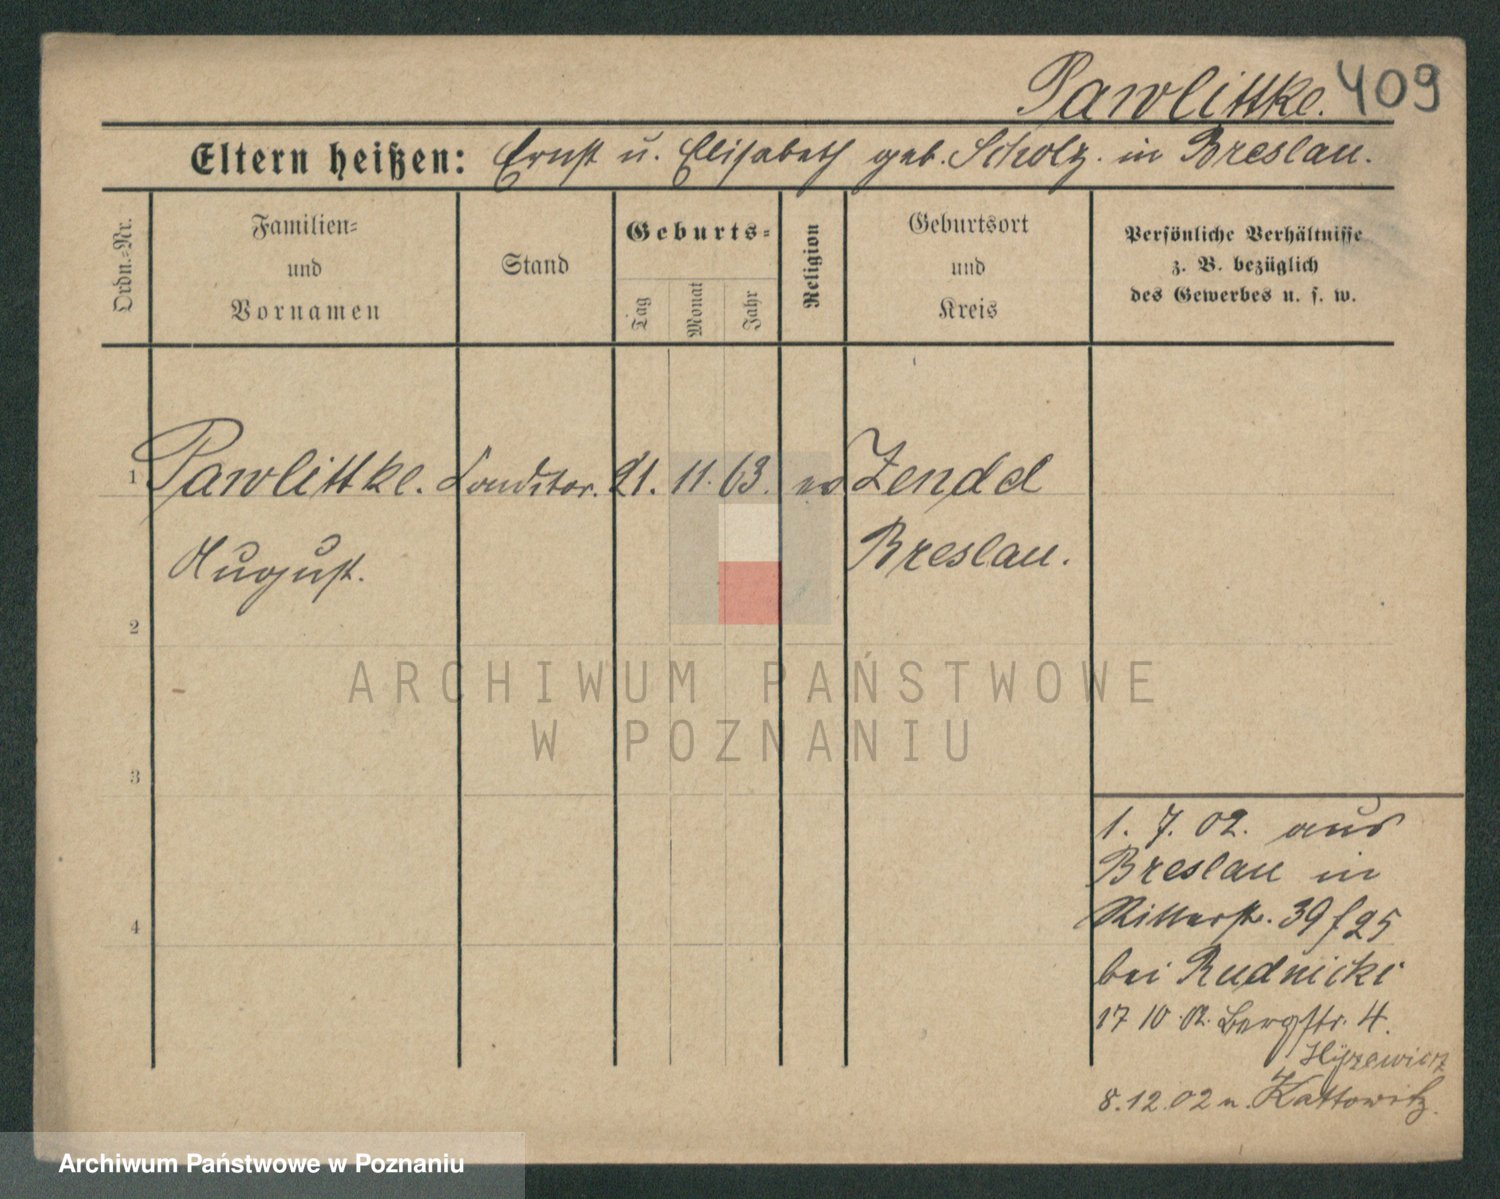 Pawlittke. 409
Eltern heißen: Ernst u. Elisabeth geb. Scholz. in Breslau.
Ordn.-Nr.
Familien-
und
Vornamen
Stand
Geburts-
Tag
Monat
Jahr
Religion
Geburtsort
und
Kreis
Persönliche Verhältnisse
z. B. bezüglich
des Gewerbes u. s. w.
1 Pawlittke. Conditor. 21. 11. 63. ev Zendel
August. Breslau.
2
3
4
1. 7. 02. aus
Breslau in
Ritterstr. 39 f 25
bei Rudnicki
17 10 02. Bergstr. 4.
8.12.02 n. Kattowitz.
ARCHIWUM PAŃSTWOWE
W POZNANIU
Archiwum Państwowe w Poznaniu